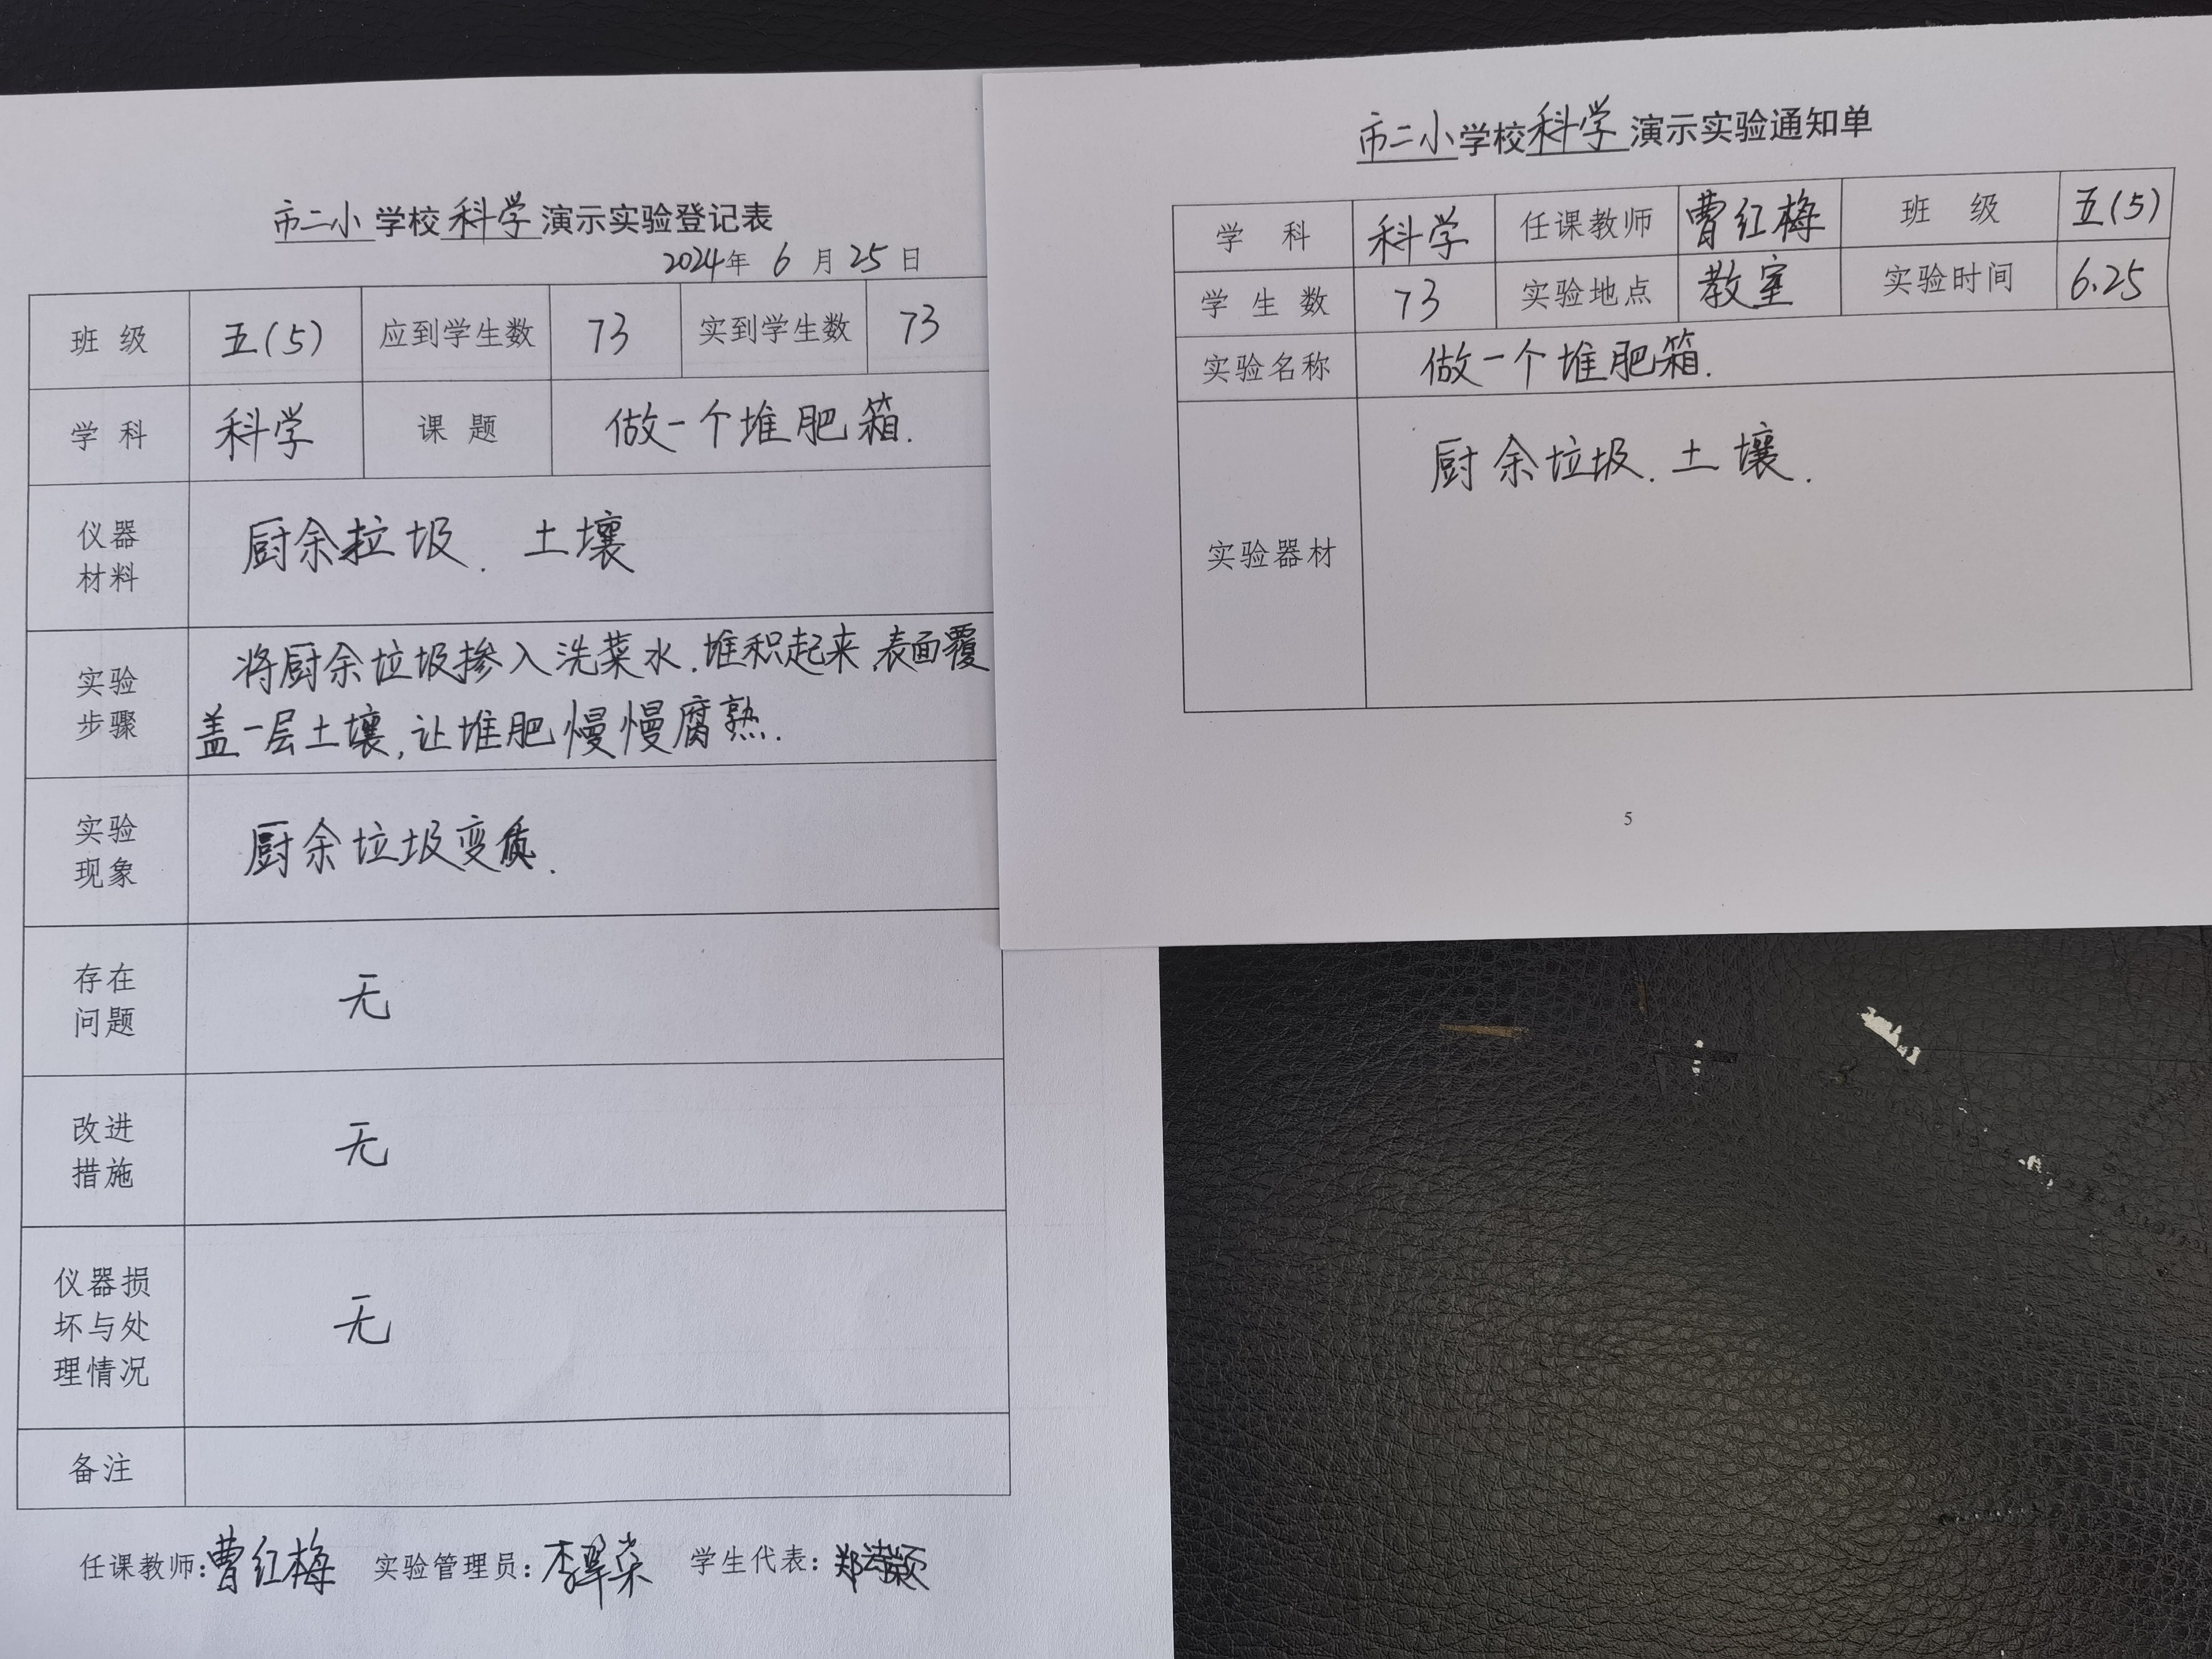 市二小学校科学演示实验登记表
2024年 6 月 25 日
班 级 五(5) 应到学生数 73 实到学生数 73
学 科 科学 课 题 做一个堆肥箱.
仪器
材料
厨余垃圾. 土壤
实验
步骤
将厨余垃圾掺入洗菜水.堆积起来,表面覆
盖一层土壤,让堆肥慢慢腐熟.
实验
现象
厨余垃圾变质.
存在
问题
无
改进
措施
无
仪器损
坏与处
理情况
无
备注
任课教师:曹红梅 实验管理员:李翠荣 学生代表:郑
市二小学校科学演示实验通知单
学 科 科学 任课教师 曹红梅 班 级 五(5)
学 生 数 73 实验地点 教室 实验时间 6.25
实验名称 做一个堆肥箱.
实验器材 厨余垃圾. 土壤.
5